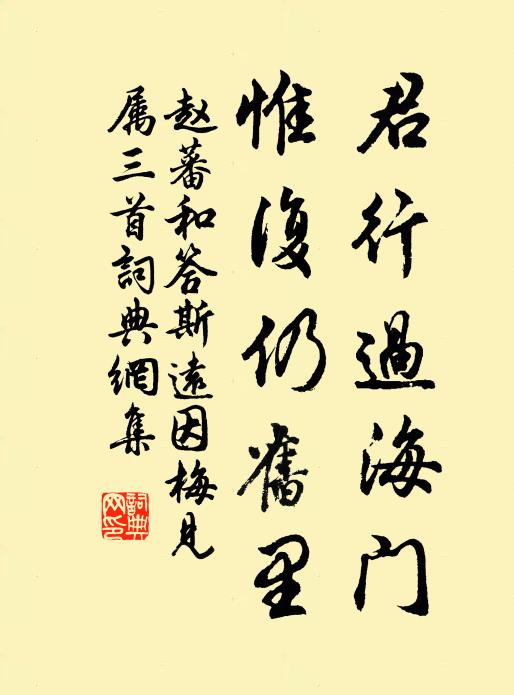 君行過海門
惟復仍舊里
赵蕃和答斯遠因梅見
属三首詞典網集
詞典
网印